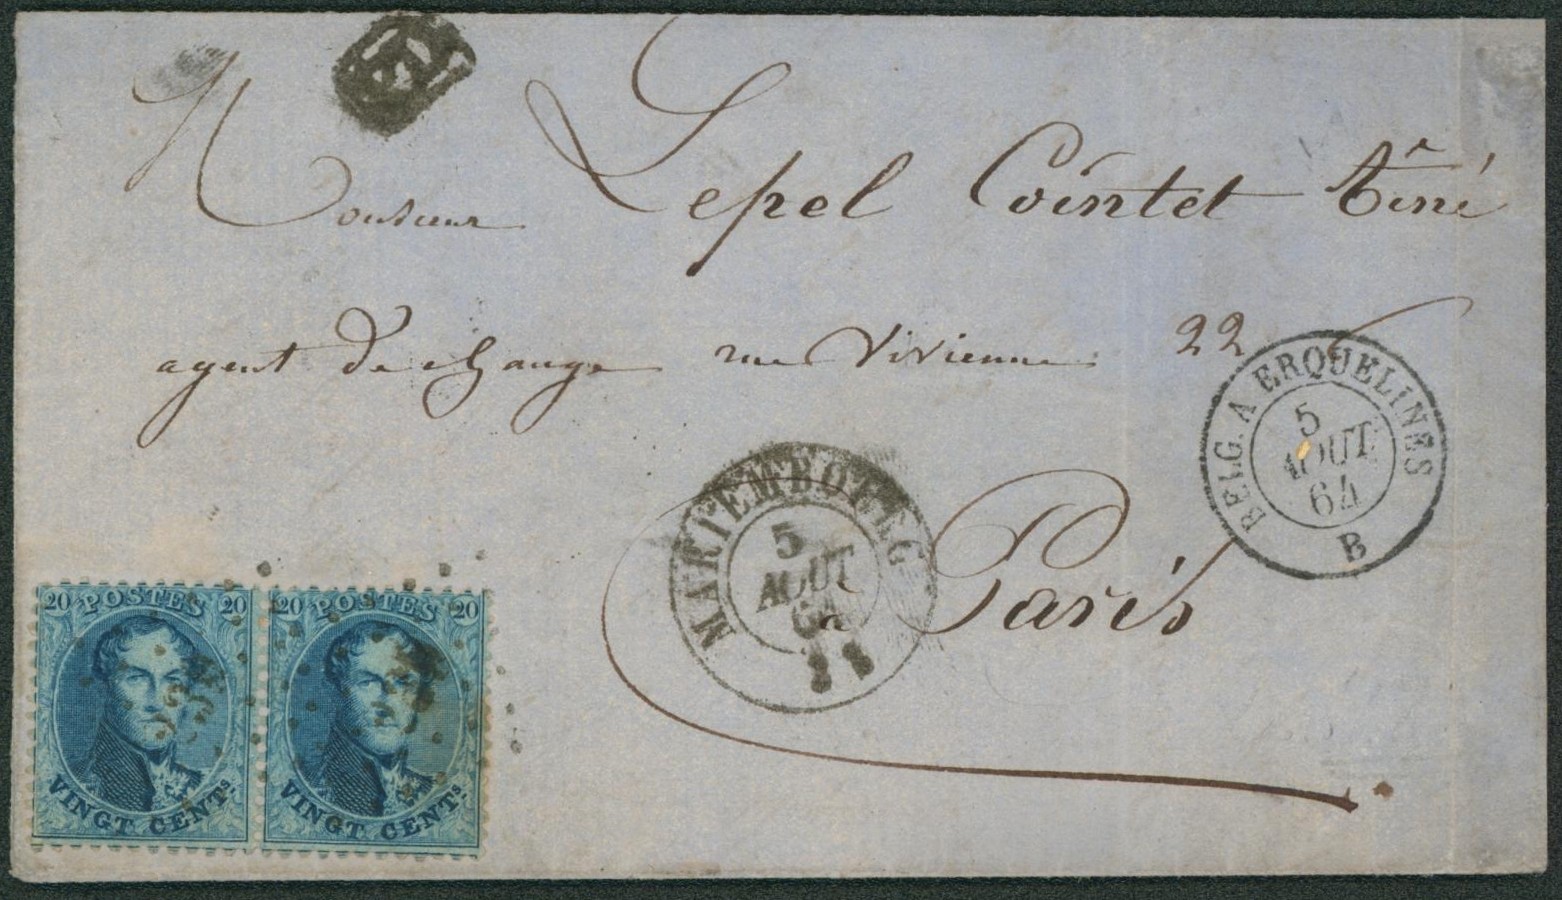 PD
Monsieur Lepel Cointet
agent de change rue Vivienne 22
BELG. A ERQUELINES
5
AOUT
64
B
MARIEMBOURG
5
AOUT
64
à Paris
20 POSTES 20
VINGT CENTS.
20 POSTES 20
VINGT CENTS.